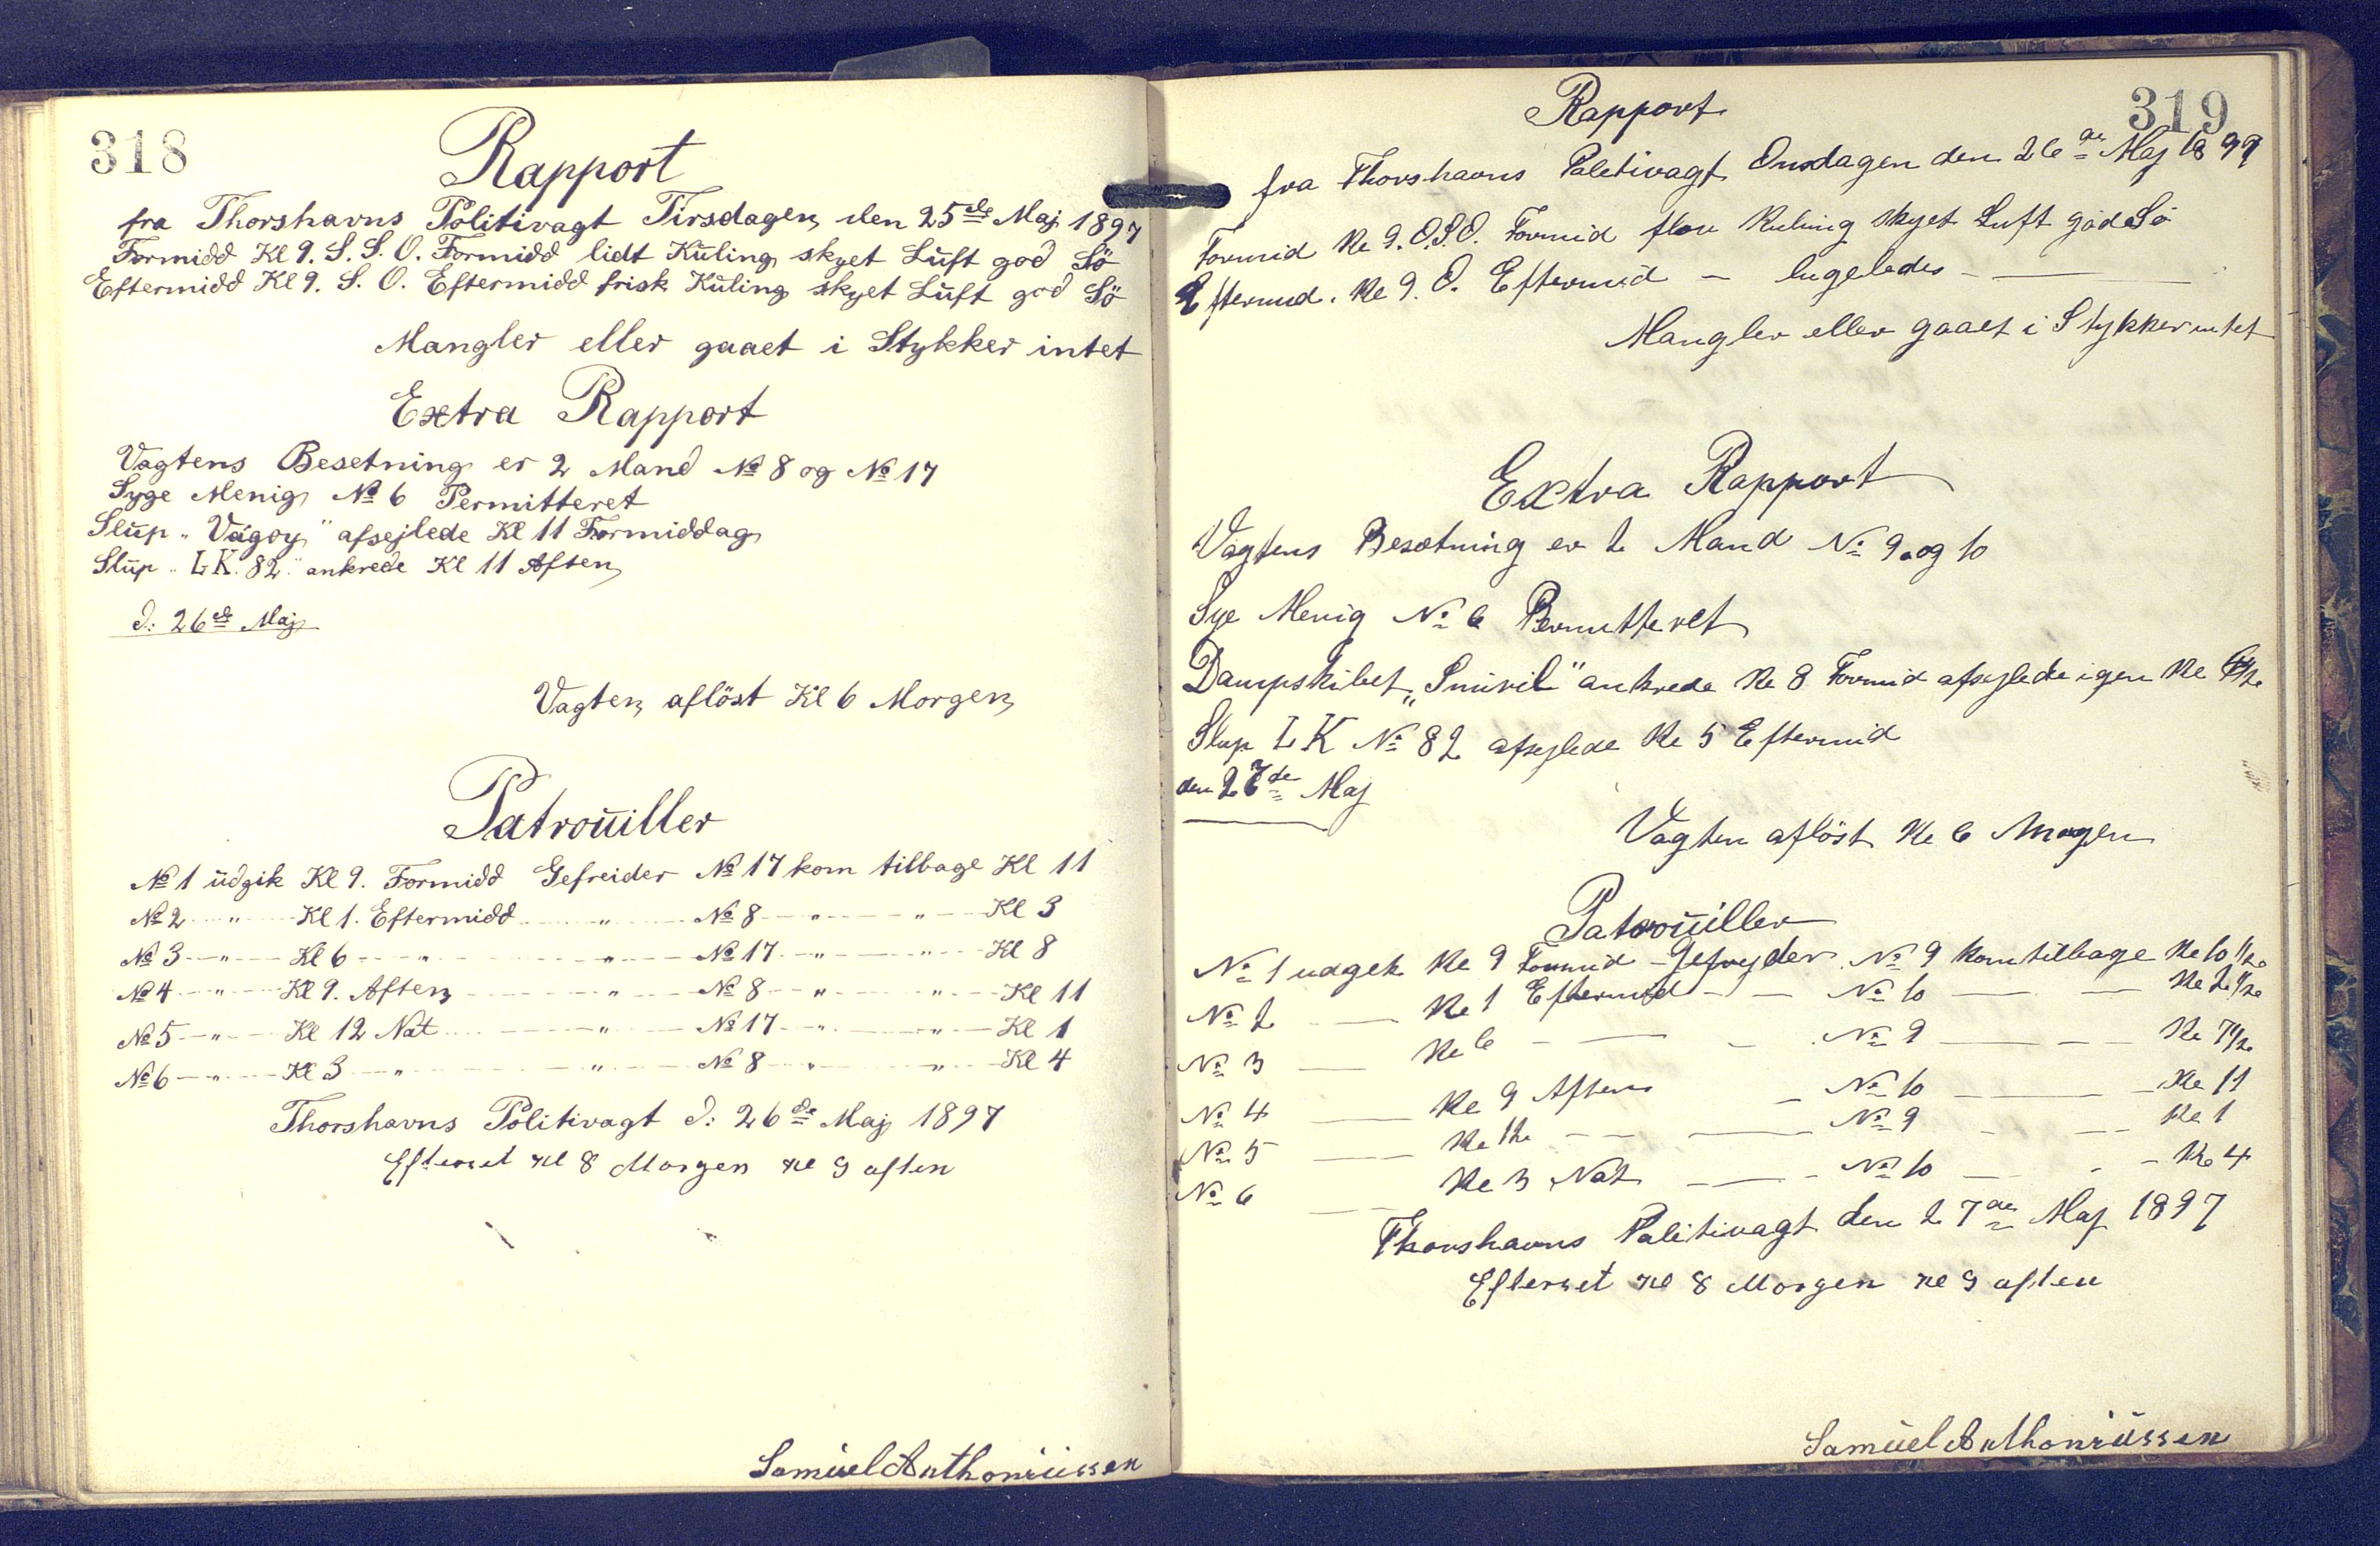 318
Rapport
fra Thorshavns Politivagt Tirsdagen den 25de Maj 1897
Formidd Kl 9. S. S. O. Formidd lidt Kuling skyet Luft god Sö
Eftermidd Kl 9. S. O. Eftermidd frisk Kuling skyet Luft god Sö
Mangler eller gaaet i Stykker intet
Extra Rapport
Vagtens Besetning er 2 Mand No 8 og No 17
Syge Menig No 6 Permitteret
Slup „Vågoy" afsejlede Kl 11 Formiddag
Slup „LK. 82." ankrede Kl 11 Aften
d: 26de Maj
Vagten aflöst Kl 6 Morgen
Patrouiller
No 1 udgik Kl 9. Formidd Gefreider No 17 kom tilbage Kl 11
No 2 " Kl 1. Eftermidd " No 8 " " Kl 3
No 3 " Kl 6 " " No 17 " " Kl 8
No 4 " Kl 9. Aften " No 8 " " Kl 11
No 5 " Kl 12 Nat " No 17 " " Kl 1
No 6 " Kl 3 " " No 8 " " Kl 4
Thorshavns Politivagt d: 26de Maj 1897
Efterset Kl 8 Morgen Kl 9 aften
Samuel Anthoniussen
319
Rapport
fra Thorshavns Paletivagt Onsdagen den 26de Maj 1897
Formid Kl 9. O.S.O. Formid flau Kuling skyet Luft god Sö
Eftermid. Kl 9. O. Eftermid — ligeledes — —
Mangler eller gaaet i Stykker intet
Extra Rapport
Vagtens Besætning er 2 Mand No 9 og 10
Sye Menig No 6 Permitteret
Dampskibet „Smiril" ankrede Kl 8 Formid afsejlede igen Kl
Slup LK No 82 afsejlede Kl 5 Eftermid
den 27de Maj
Vagten aflöst Kl 6 Morgen
Patrouiller
No 1 udgek Kl 9 Formid Gefreyder No 9 kom tilbage Kl 10 1/2
No 2 — Kl 1 Eftermid — — No 10 — — Kl 2 1/2
No 3 — Kl 6 — — No 9 — — Kl 7 1/2
No 4 — Kl 9 Aften — No 10 — — Kl 11
No 5 — Kl 12 — — No 9 — — Kl 1
No 6 — Kl 3 Nat — — No 10 — — Kl 4
Thorshavns Palitivagt den 27de Maj 1897
Efterset Kl 8 Morgen Kl 9 aften
Samuel Anthoniussen